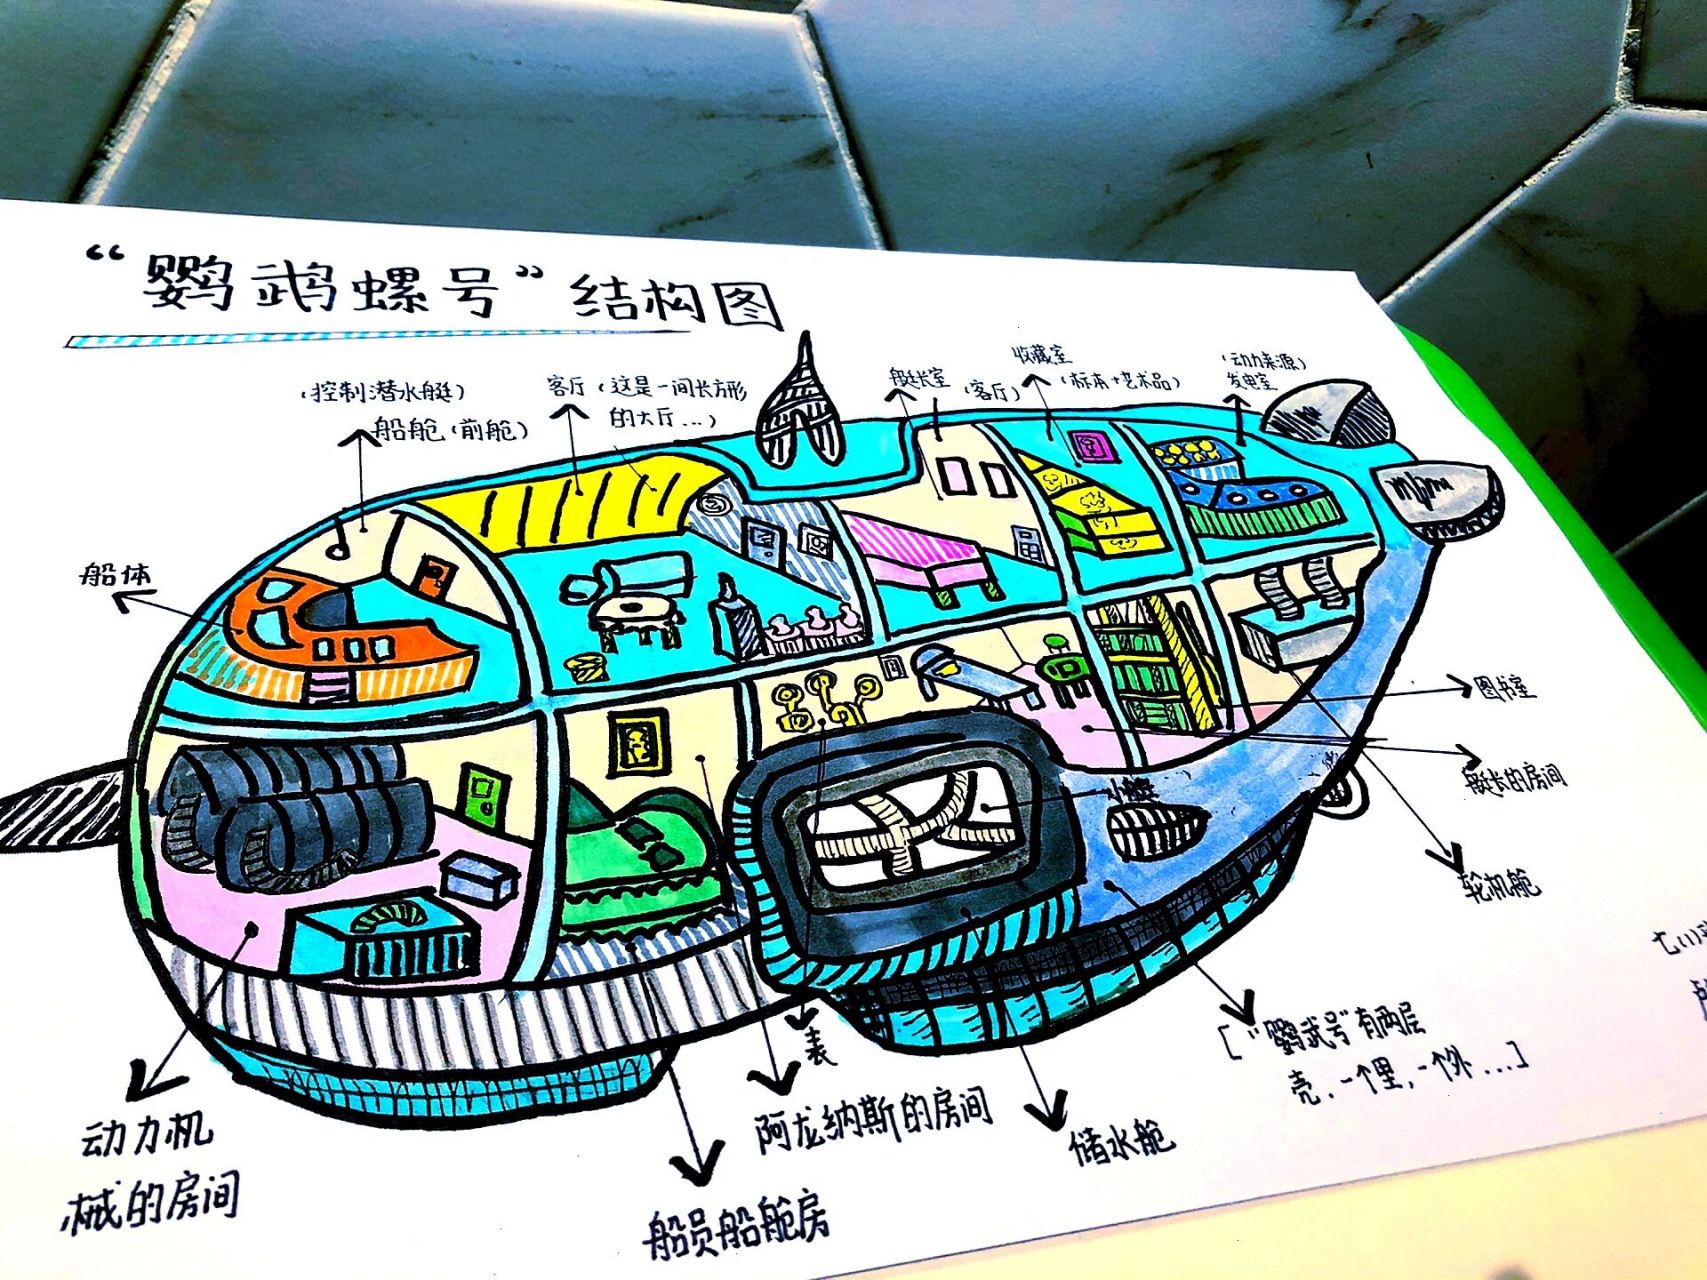 “鹦鹉螺号”结构图
(控制潜水艇)
船舱(前舱)
客厅(这是一间长方形
的大厅...)
艇长室
(客厅)
收藏室
(标本+艺术品)
(动力来源)
发电室
船体
图书室
艇长的房间
轮机舱
小艇
[“鹦鹉号”有两层
壳.一个里,一个外...]
表
阿龙纳斯的房间
储水舱
船员船舱房
动力机
械的房间